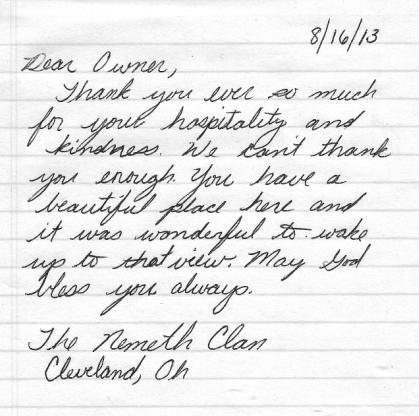 8/16/13
Dear Owner,
Thank you ever so much
for your hospitality and
kindness. We can't thank
you enough. You have a
beautiful place here and
it was wonderful to wake
up to that view. May God
bless you always.
The Nemeth Clan
Cleveland, Oh